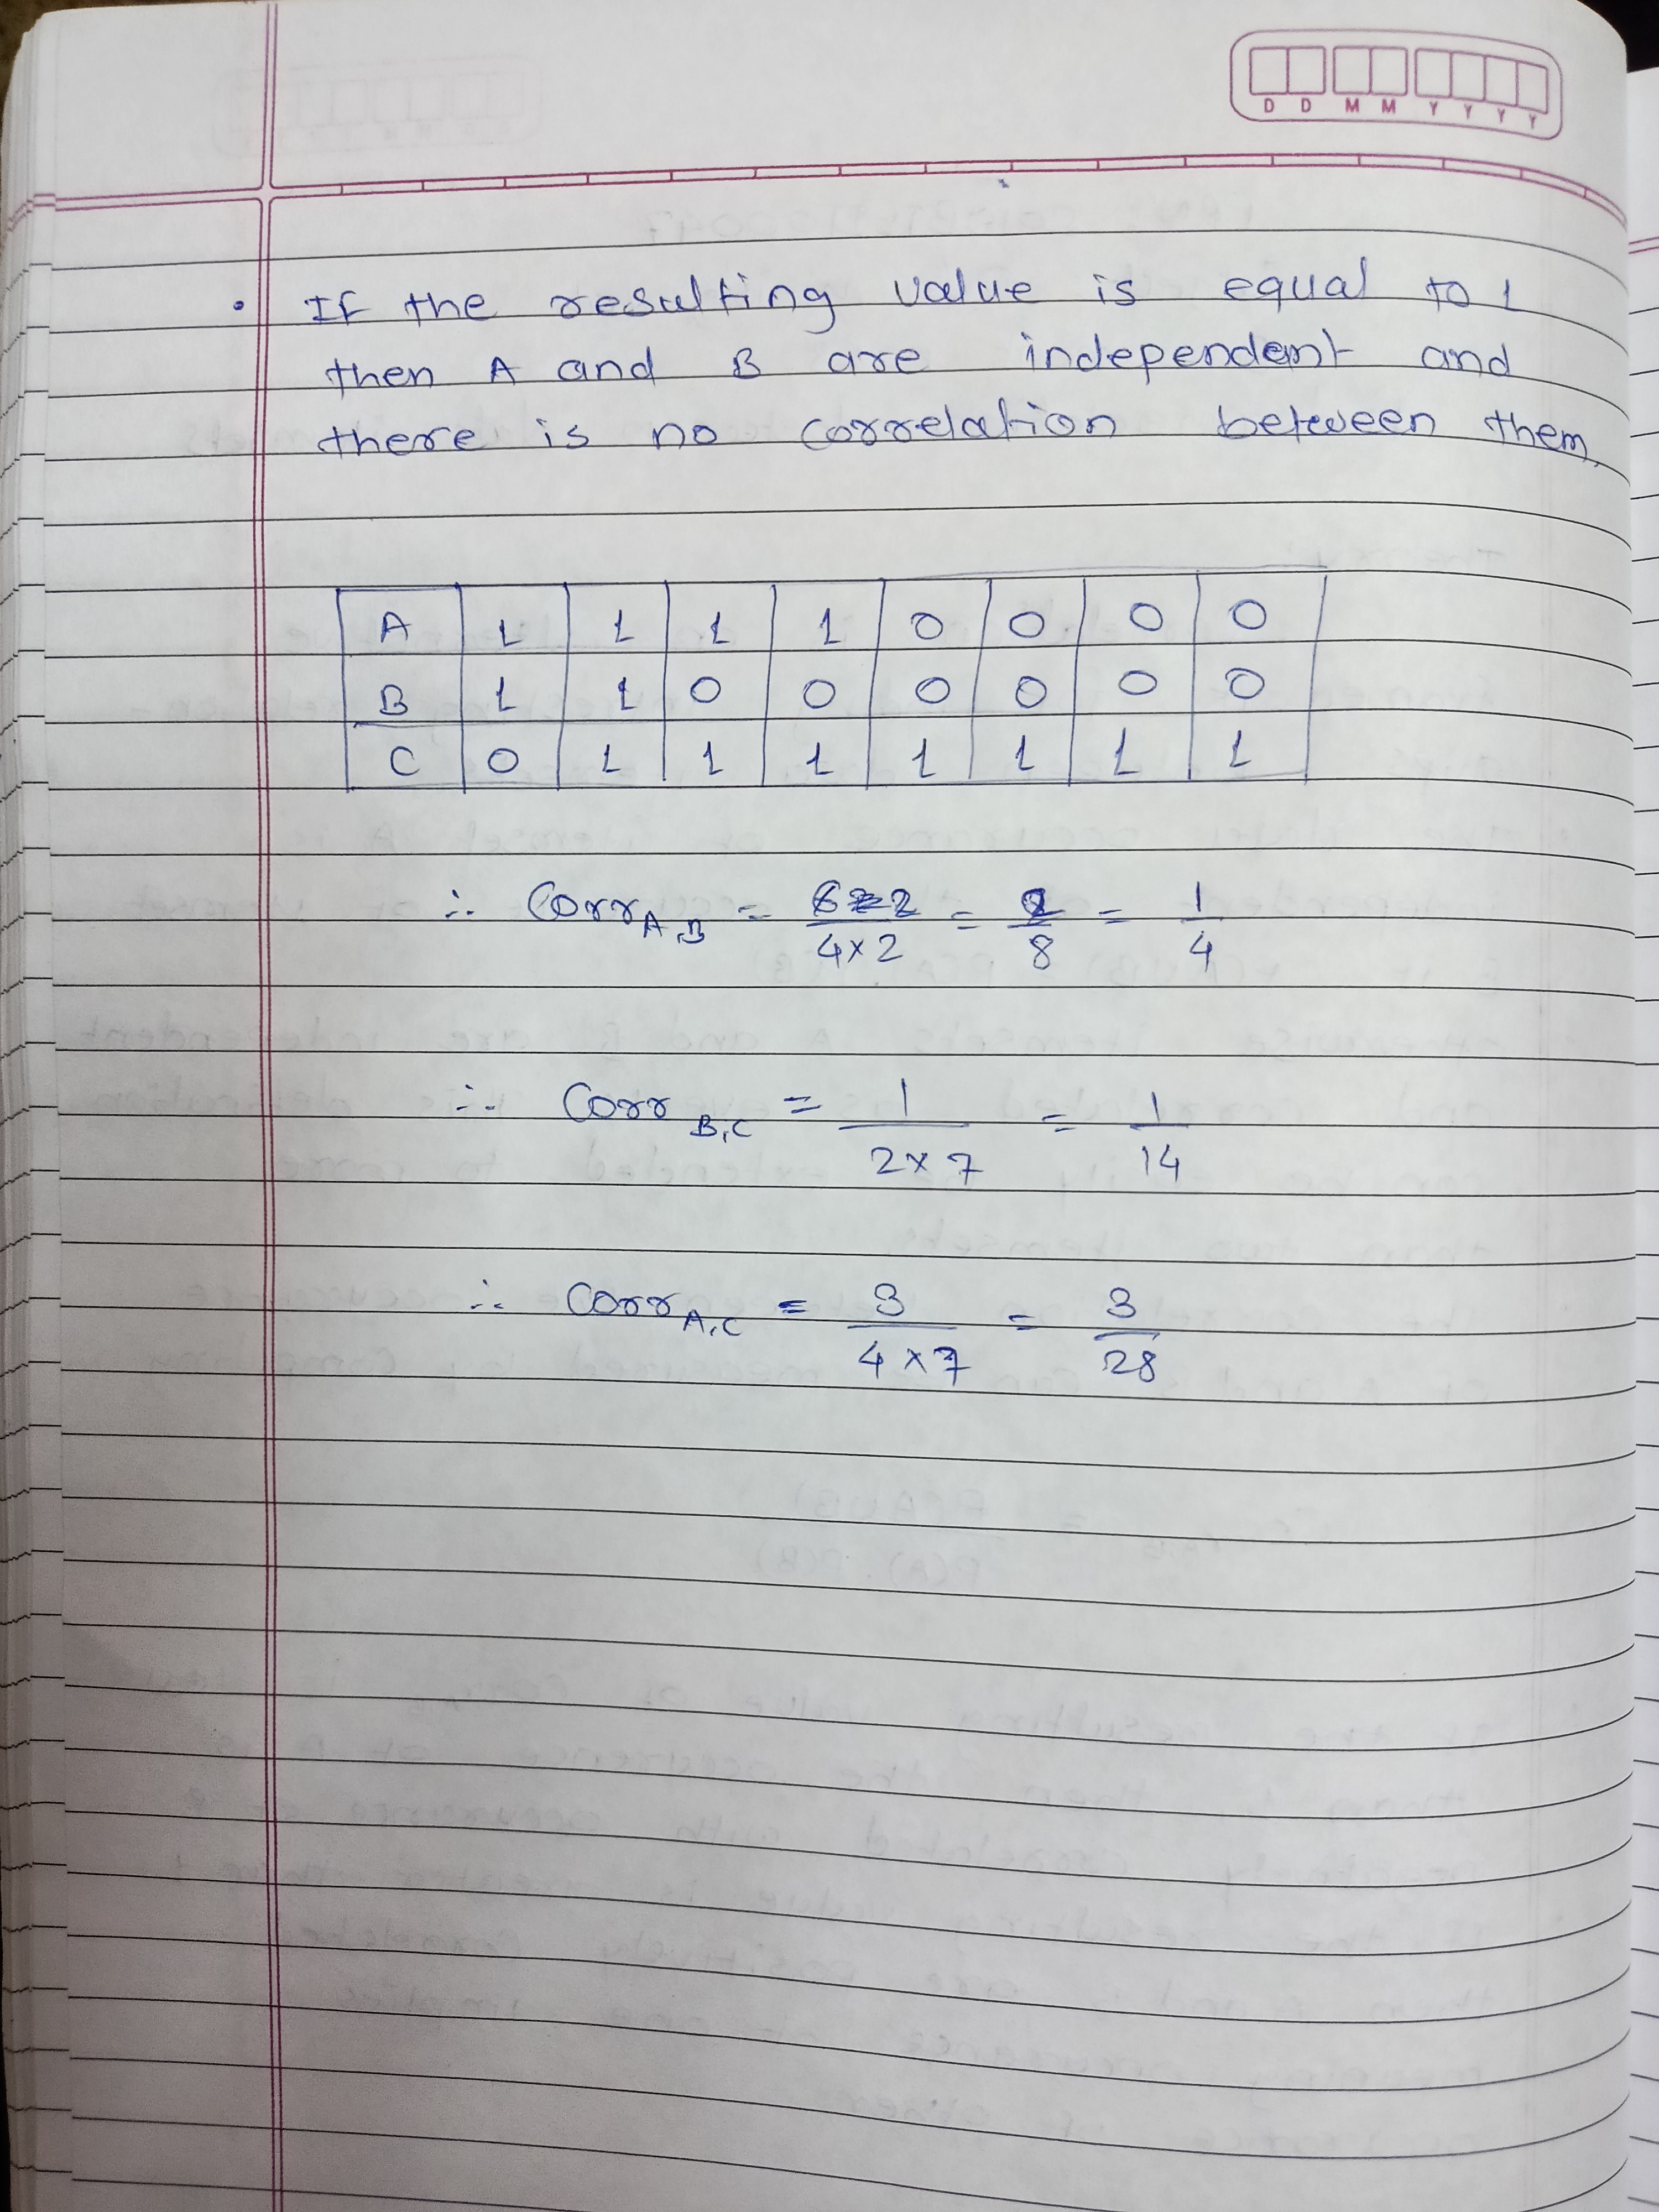 D D M M Y Y Y Y
• If the resulting value is equal to 1
then A and B are independent and
there is no correlation between them.
A 1 1 1 1 0 0 0 0
B 1 1 0 0 0 0 0 0
C 0 1 1 1 1 1 1 1
∴ Corr A,B = 2 / 4×2 = 2/8 = 1/4
∴ Corr B,C = 1 / 2×7 = 1/14
∴ Corr A,C = 3 / 4×7 = 3/28